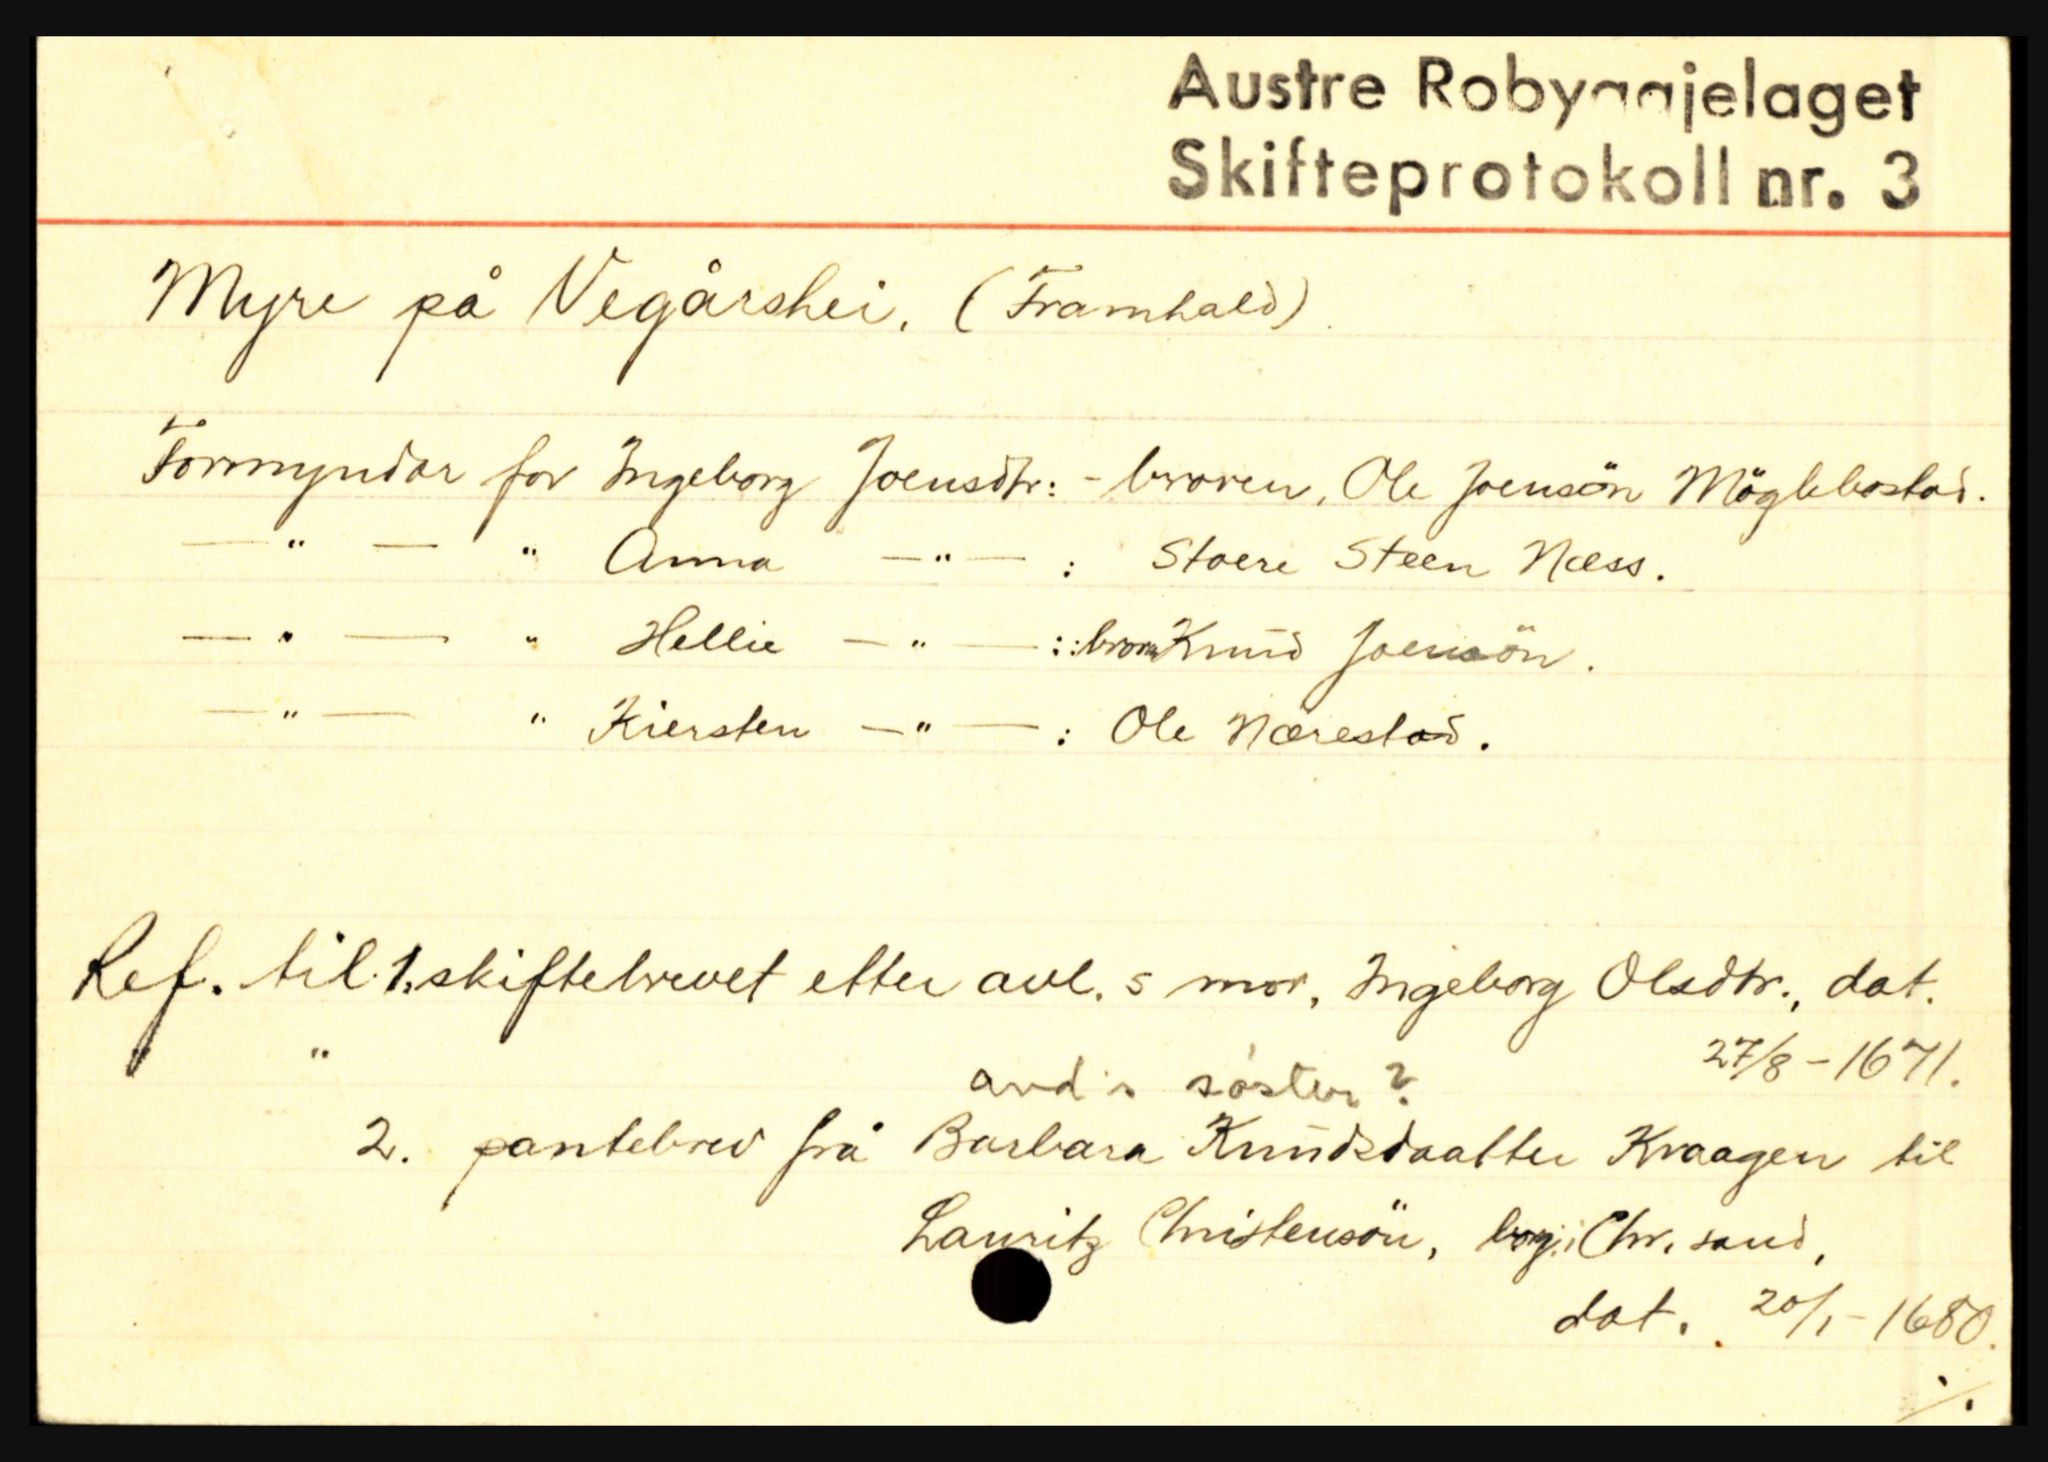 Austre Robyggjelaget
Skifteprotokoll nr. 3
Myre på Vegårshei. (Framhald).
Formyndar for Ingeborg Joensdtr: - broren, Ole Joensön Möglebostad.
— " — " Anna — " — : Staere Steen Næss.
— " — " Hellie — " — : : broren Knud Joensön.
— " — " Kiersten — " — : Ole Nærestad.
Ref. til 1. skiftebrevet etter avl. s mor, Ingeborg Olsdtr., dat.
" " 27/8 - 1671.
avd s söster?
2. pantebrev frå Barbara Knudsdaatter Kraagen til
Lauritz Christensön, borg. i Chr. sand,
dat. 20/1 - 1680.
./.